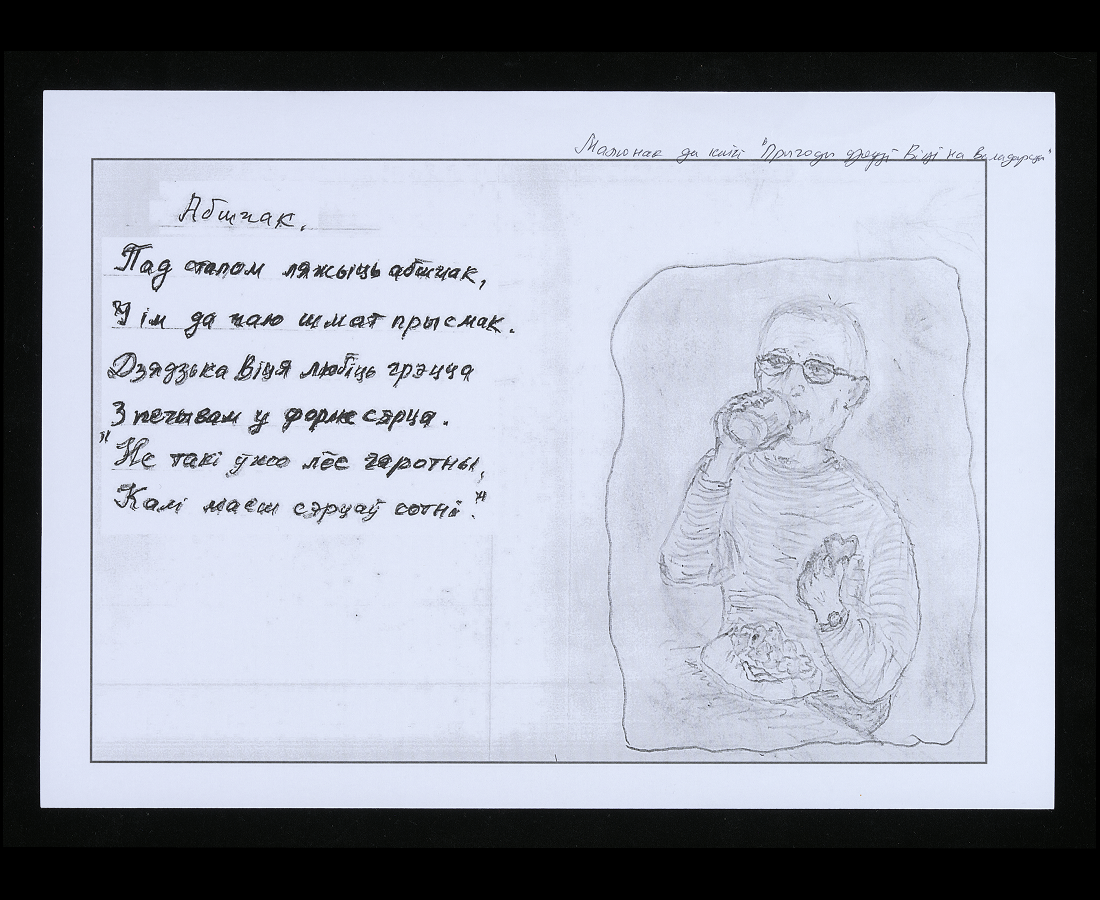 Малюнак да кнігі "Прыгоды дзядзі Віці на Валадарцы"
Абшчак.
Пад сталом ляжыць абшчак,
У ім да чаю шмат прысмак.
Дзядзька Віця любіць грэцца
З печывам у форме сэрца.
"Не такі ўжо лёс гаротны,
Калі маеш сэрцаў сотні."